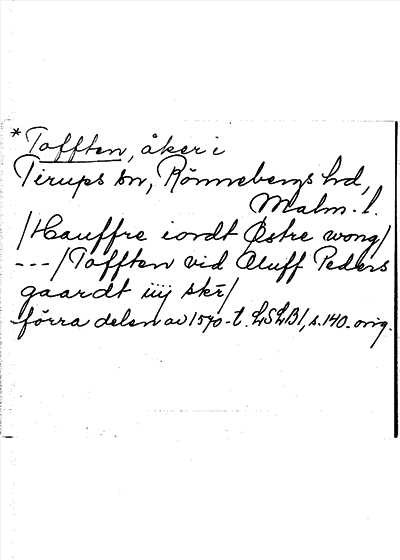 *Tofften, åker i
Tirups sn, Rönnebergs hd,
Malm. l.
/Hauffre iordt Østre wong/
---/Tofften vid Oluff Peders
gaardt iiij skr̄/
förra delen av 1570-t. LSLB1, s. 140. orig.